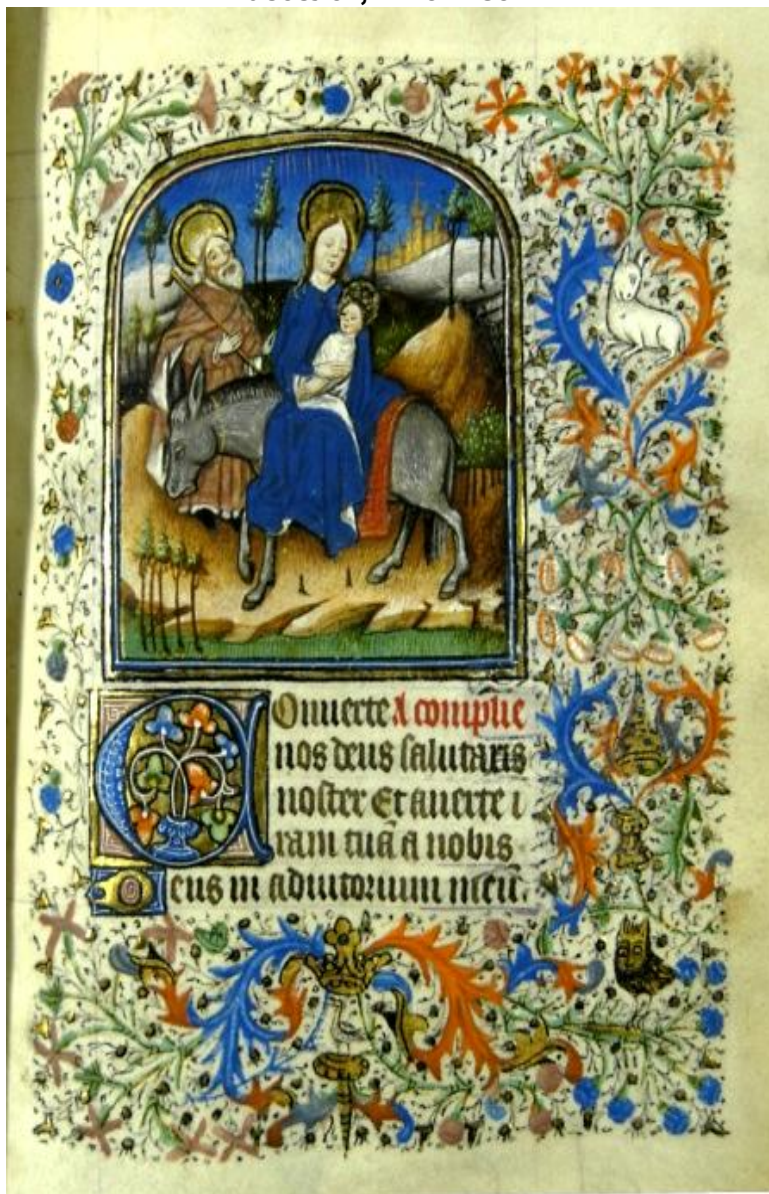 Conuerte A complie
nos deus salutaris
noster Et auerte i
ram tuã a nobis
Deus in adiutorium meũ.